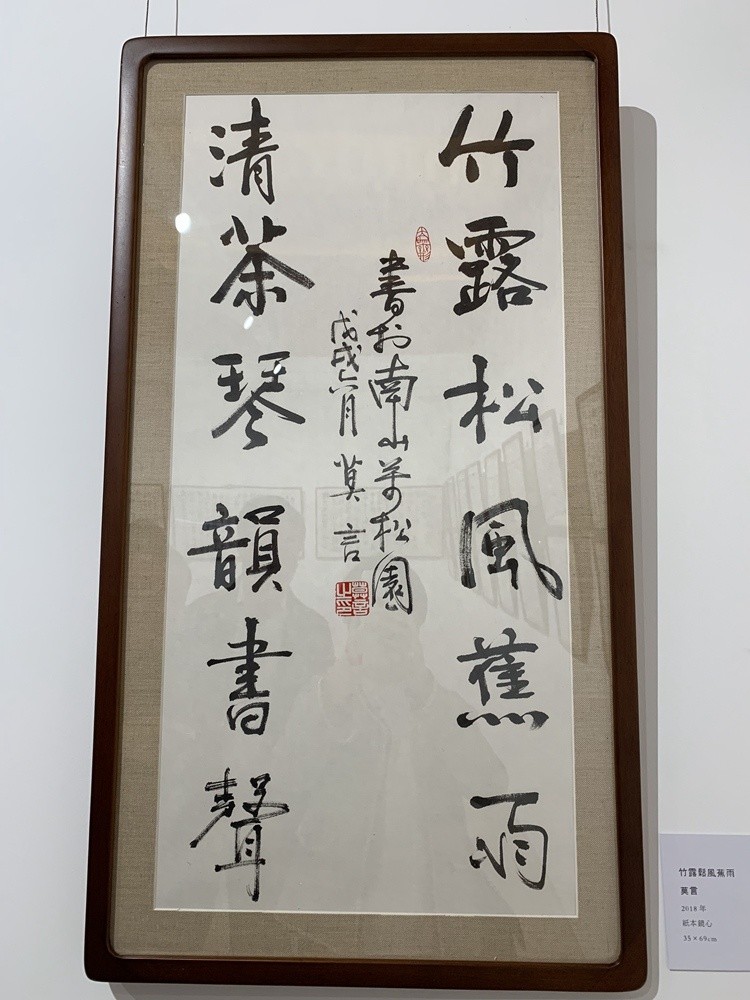 竹露松風蕉雨
書於南山萬松園
戊戌六月 莫言
清茶琴韻書聲
莫言之印
竹露鬆風蕉雨
莫言
2018 年
紙本鏡心
35×69cm